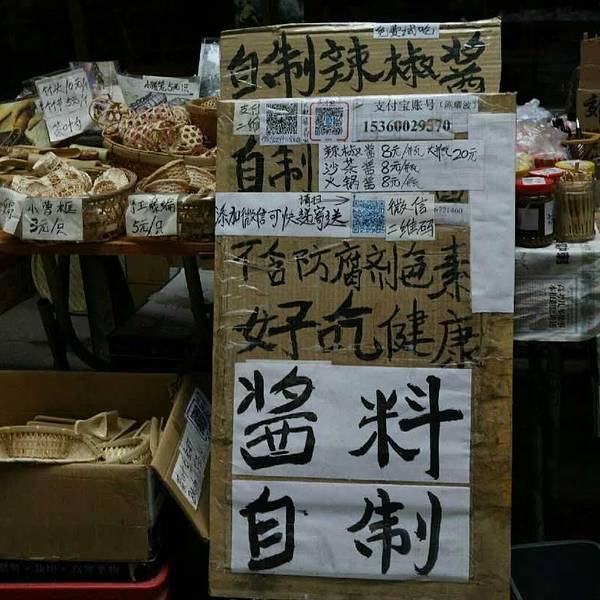 免费试吃
自制辣椒酱
支付宝账号(陈耀波)
15360029570
自制
辣椒酱 8元/瓶 大瓶20元
沙茶酱 8元/瓶
火锅酱 8元/瓶
请扫
添加微信可快递寄送
微信
二维码
不含防腐剂色素
好吃健康
酱料
自制
小枣框
3元/只
5元/只